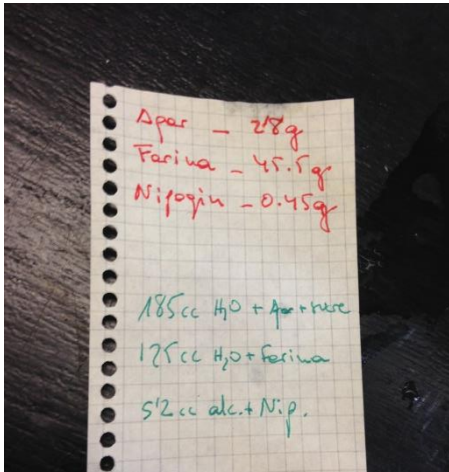 Agar - 28g
Farina - 45.5g
Nipagin - 0.45g
185cc H2O + Agar + sucre
125cc H2O + Farina
5'2 cc alc. + Nip.